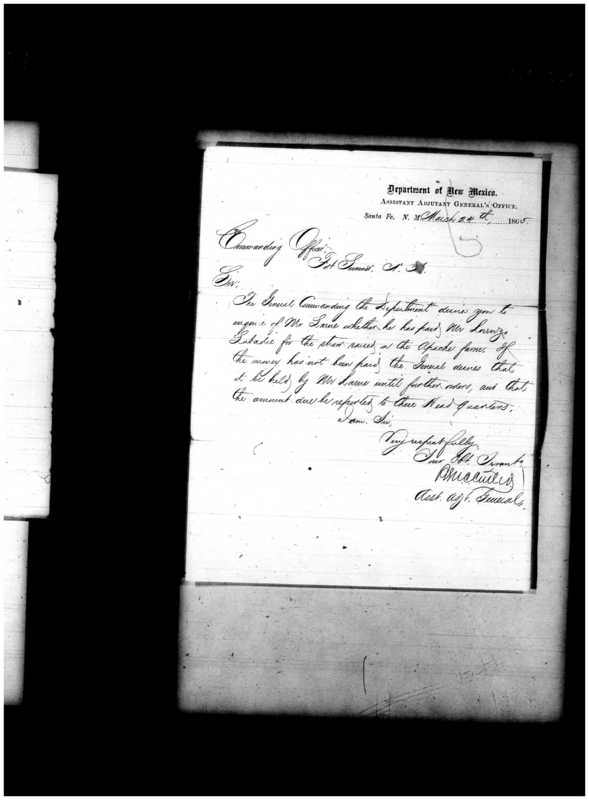 Department of New Mexico,
ASSISTANT ADJUTANT GENERAL'S OFFICE,
Santa Fe, N. M. March 24th, 1865.
Commanding Officer
Fort Sumner. N. M.
Sir:
The General Commanding the Department desires you to
enquire of Mr whether he has paid, Mr Lorenzo
Labadie for the straw raised on the Apache farm. If
the money has not been paid, the General desires that
it be held by Mr until further orders, and that
the amount due be reported to these Head Quarters.
I am, Sir,
Very respectfully
Your Obt. Servant
Asst. Agt. General.